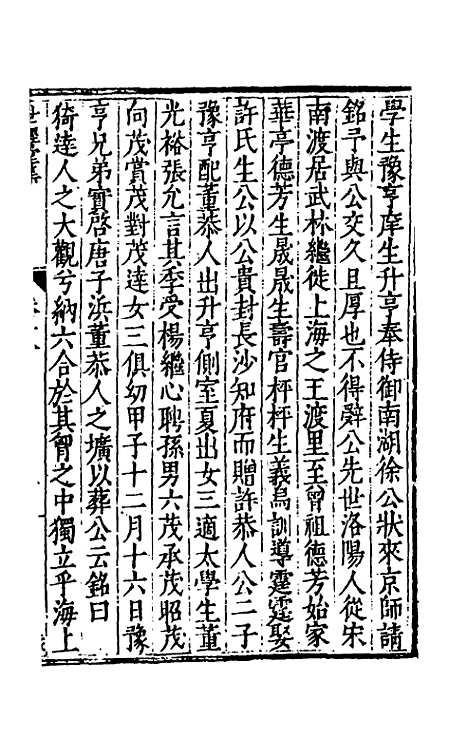 學生豫亨庠生升亨奉侍御南湖徐公狀來京師請
銘予與公交久且厚也不得辤公先世洛陽人從宋
南渡居武林繼徙上海之王渡里至曾祖德芳始家
華亭德芳生晟晟生壽官枰枰生義烏訓導霆霆娶
許氏生公以公貴封長沙知府而贈許恭人公二子
豫亨配董恭人出升亨側室夏出女三適太學生董
光裕張允言其季受楊繼心聘孫男六茂承茂昭茂
向茂賞茂對茂達女三俱幼甲子十二月十六日豫
亨兄弟實啓唐子浜董恭人之壙以葬公云銘曰
猗達人之大觀兮納六合於其胷之中獨立乎海上